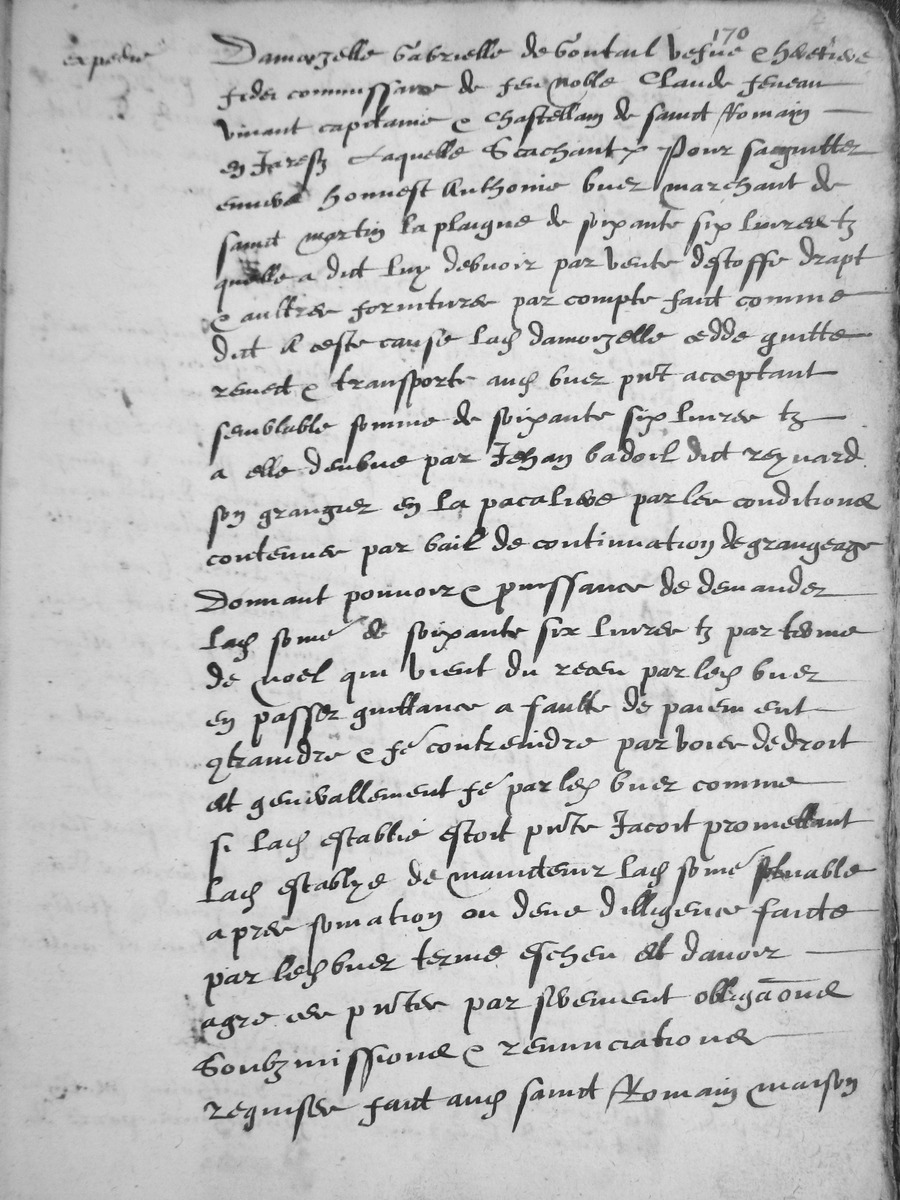 170
expedié
Damoyzelle Gabrielle de Gontail vefve & heretiere
fidei commissaire de feu noble Claude feneau
vivant capitanie & Chastellain de sainct Romain
en Jarestz Laquelle Scachant &c Pour sacquitter
envers honnest Anthonie buer marchant de
sainct martin la plaigne de soixante six livres tz
quelle a dict luy debvoir par vente destoffe drapt
& aultres fornitures par compte faict comme
dict A ceste cause lad damoyzelle cedde quitte
remect & transporte aud buer pnt acceptant
semblable somme de soixante six livres tz
a elle deubve par Jehan badoil dict reynard
son grangier en la pacaliere par les conditions
contenues par bail de continuation de grangeage
Donnant pouvoir & puissance de demander
lad some de soixante six livres tz par terme
de noel qui vient du receu par led buer
en passer quittance a faulte de paiement
9traindre & fe contreindre par voies de droit
et generallement fe par led buer comme
si lad establie estoit pnte Jacoit promettant
lad establye de maintenir lad some solvable
apres somation ou deue dilligence faicte
par led buer terme escheu et davoir
agre ces pntes par serement obligaons
Soubzmissions & renunciations
requises faict aud sainct Romain maison